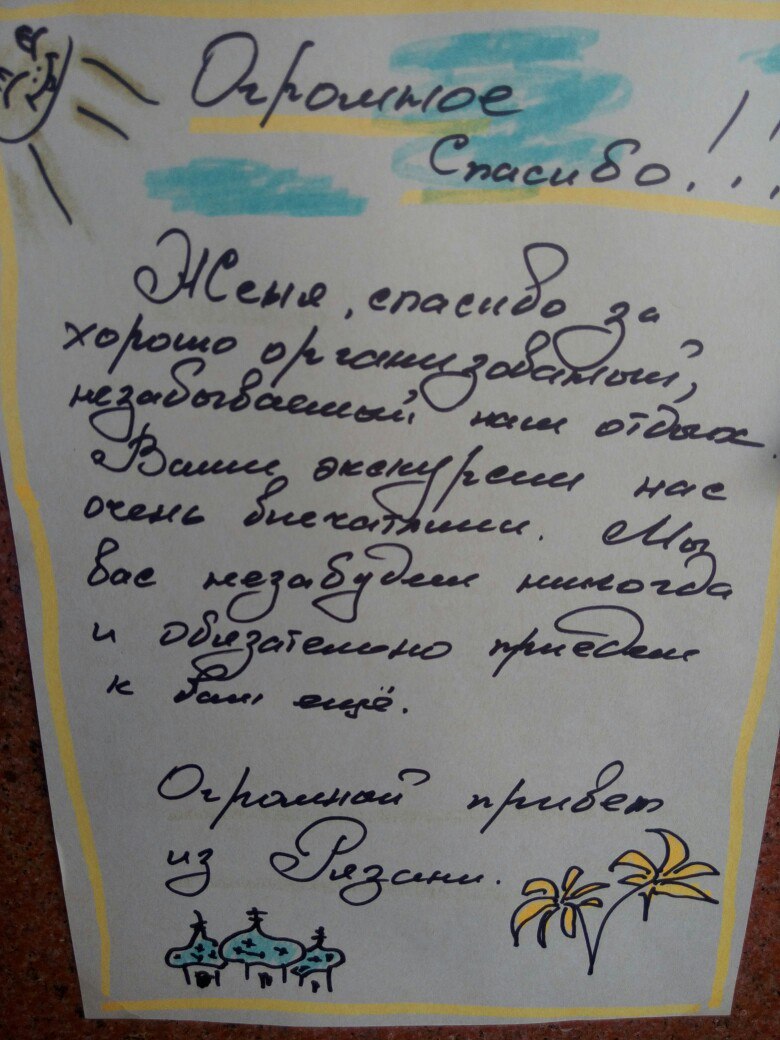 Огромное
Спасибо!!!
Женя, спасибо за
хорошо организованный,
незабываемый наш отдых.
Ваши экскурсии нас
очень впечатлили. Мы
вас незабудем никогда
и обязательно приедем
к вам ещё.
Огромный привет
из Рязани.